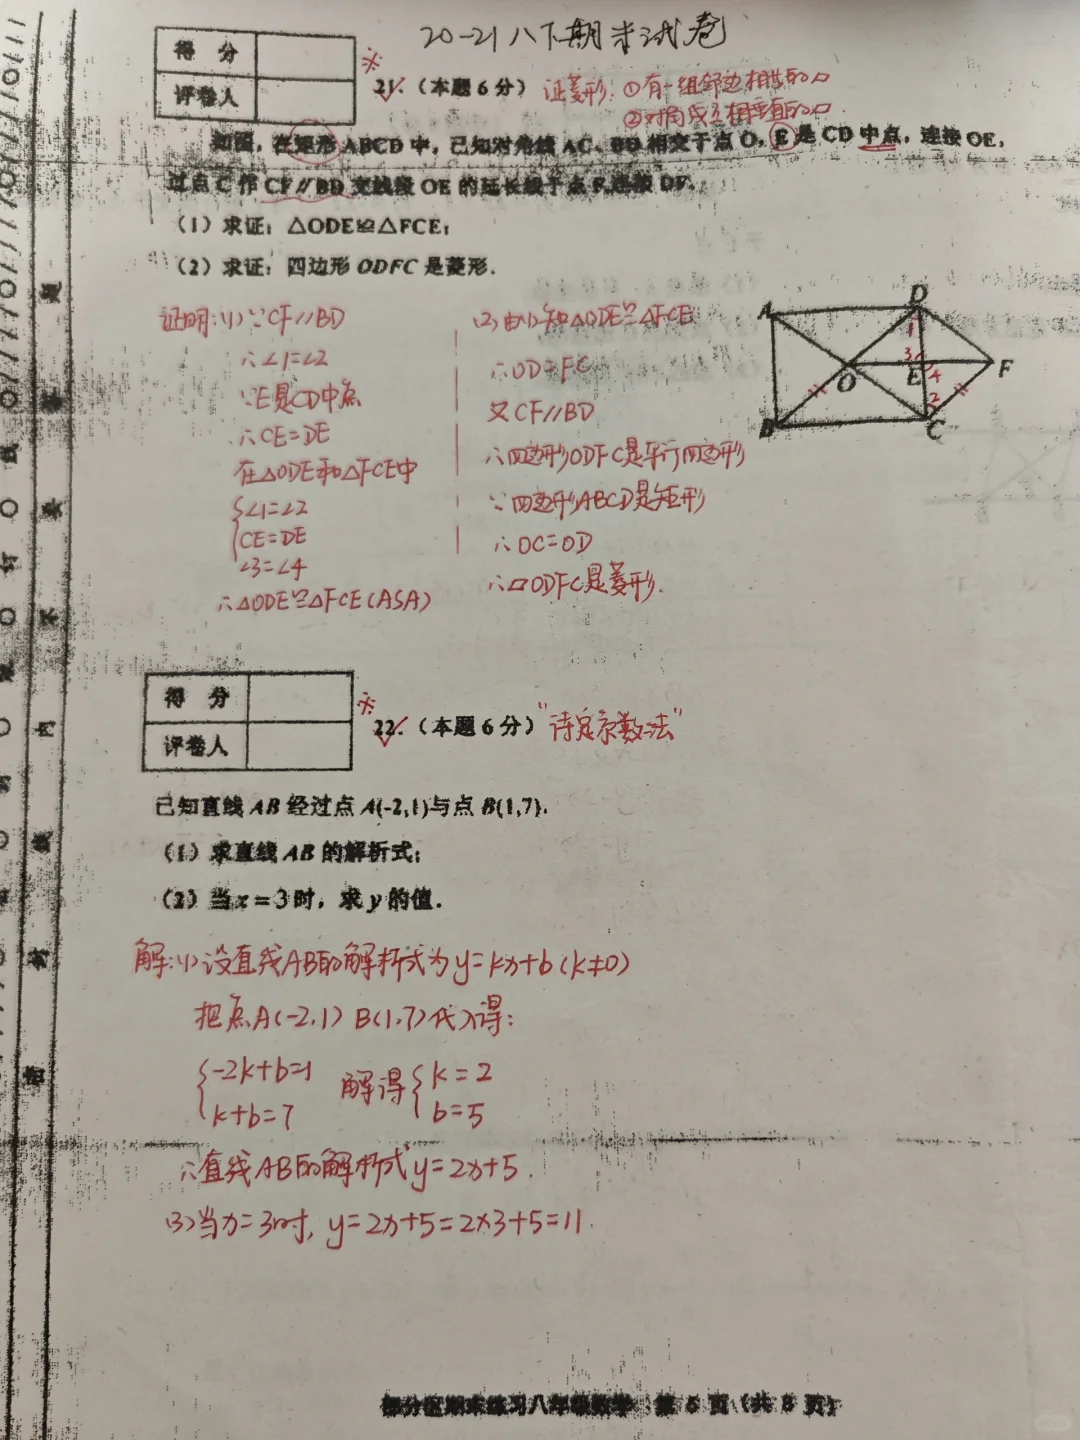 20-21八下期末试卷
得 分
评卷人
※
21.（本题6分） 证菱形:①有一组邻边相等的▱
②对角线互相垂直的▱.
如图，在矩形 ABCD 中，已知对角线 AC、BD 相交于点 O，E 是 CD 中点，连接 OE，
过点 C 作 CF∥BD 交线段 OE 的延长线于点 F,连接 DF.
（1）求证：△ODE≌△FCE；
（2）求证：四边形 ODFC 是菱形.
证明:(1)∵CF∥BD
∴∠1=∠2
∵E是CD中点
∴CE=DE
在△ODE和△FCE中
∠1=∠2
CE=DE
∠3=∠4
∴△ODE≌△FCE(ASA)
(2)由(1)知△ODE≌△FCE
∴OD=FC
又CF∥BD
∴四边形ODFC是平行四边形
∵四边形ABCD是矩形
∴OC=OD
∴▱ODFC是菱形.
A D
1
3 F
O E 4
2
B C
得 分
评卷人
※
22.（本题6分）"待定系数法"
已知直线 AB 经过点 A(-2,1)与点 B(1,7).
（1）求直线 AB 的解析式；
（2）当 x = 3 时，求 y 的值.
解:(1)设直线AB的解析式为y=kx+b(k≠0)
把点A(-2,1) B(1,7)代入得:
{-2k+b=1 解得{k=2
k+b=7 b=5
∴直线AB的解析式y=2x+5.
(2)当x=3时, y=2x+5=2×3+5=11.
部分区期末练习八年级数学 第 5 页（共 8 页）
题
答
要
不
内
线
封
密
线
订